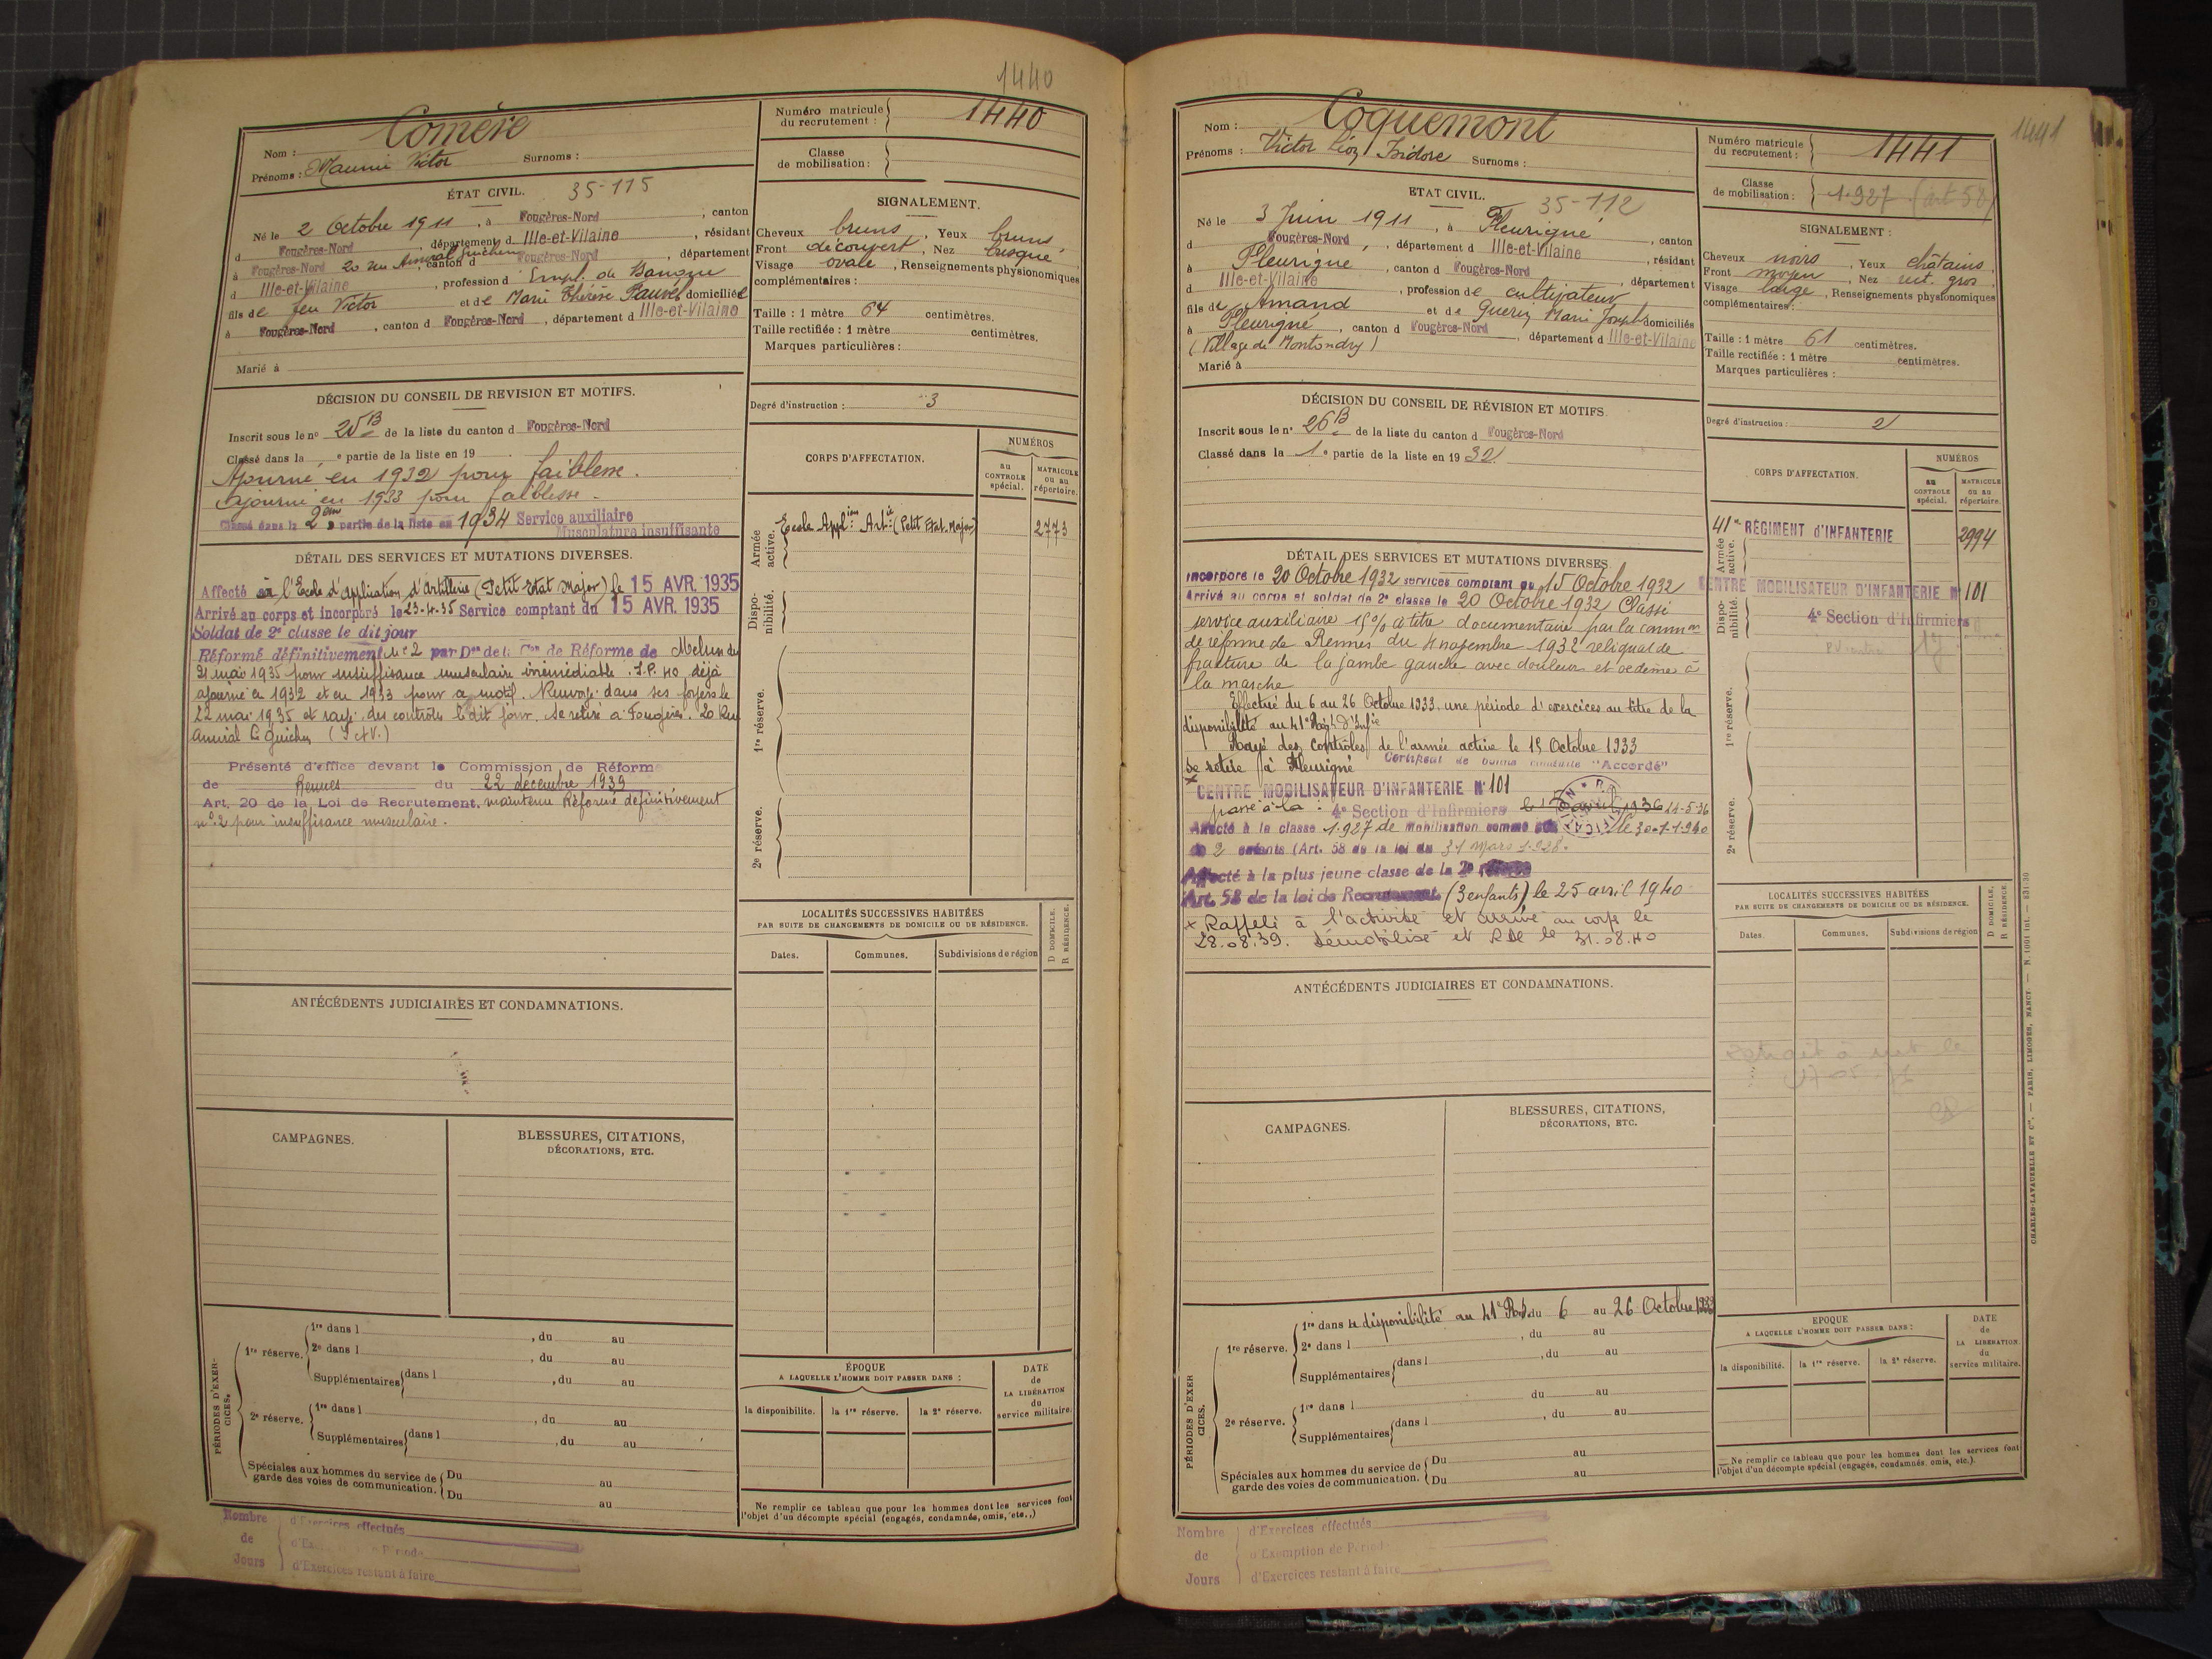 1440
Nom : Comère
Prénoms : Maurice Victor Surnoms :
Numéro matricule du recrutement : 1440
Classe de mobilisation :
ÉTAT CIVIL. 35-115
Né le 2 Octobre 1911, à Fougères-Nord, canton
d Fougères-Nord, département d Ille-et-Vilaine, résidant
à Fougères-Nord 20 rue Amiral Guichen, canton d Fougères-Nord, département
d Ille-et-Vilaine, profession d Empl. de Banque
fils de feu Victor et de Marie Thérèse Fauvel domiciliée
à Fougères-Nord, canton d Fougères-Nord, département d Ille-et-Vilaine
Marié à
SIGNALEMENT.
Cheveux bruns, Yeux bruns,
Front découvert, Nez busqué
Visage ovale, Renseignements physionomiques
complémentaires :
Taille : 1 mètre 64 centimètres.
Taille rectifiée : 1 mètre centimètres.
Marques particulières :
Degré d'instruction : 3
DÉCISION DU CONSEIL DE REVISION ET MOTIFS.
Inscrit sous le n° 25 B de la liste du canton d Fougères-Nord
Classé dans la e partie de la liste en 19 .
Ajourné en 1932 pour faiblesse.
Ajourné en 1933 pour faiblesse -
Classé dans la 2ème partie de la liste en 1934 Service auxiliaire
Musculature insuffisante
CORPS D'AFFECTATION.
NUMÉROS
au CONTROLE spécial.
MATRICULE ou au répertoire.
Armée active.
Ecole Appl.ion Art.ie (Petit Etat-Major)
2773
Dispo-nibilité.
1re réserve.
2e réserve.
DÉTAIL DES SERVICES ET MUTATIONS DIVERSES.
Affecté à l'Ecole d'application d'Artillerie (Petit Etat Major) le 15 AVR. 1935
Arrivé au corps et incorporé le 23-4-35 Service comptant du 15 AVR. 1935
Soldat de 2e classe le dit jour
Réformé définitivement n° 2 par Don de la Con de Réforme de Melun du
21 mai 1935 pour insuffisance musculaire irrémédiable. I.P. 40 déjà
ajourné en 1932 et en 1933 pour ce motif. Renvoyé dans ses foyers le
22 mai 1935 et rayé des contrôles le dit jour. Se retire à Fougères. 20 Rue
Amiral Guichen (I et V.)
Présenté d'office devant la Commission de Réforme
de Rennes du 22 décembre 1939
Art. 20 de la Loi de Recrutement, maintenu Réformé définitivement
n° 2 pour insuffisance musculaire.
ANTÉCÉDENTS JUDICIAIRES ET CONDAMNATIONS.
LOCALITÉS SUCCESSIVES HABITÉES
PAR SUITE DE CHANGEMENTS DE DOMICILE OU DE RÉSIDENCE.
Dates.
Communes.
Subdivisions de région
D DOMICILE.
R RÉSIDENCE.
CAMPAGNES.
BLESSURES, CITATIONS,
DÉCORATIONS, ETC.
PÉRIODES D'EXER-CICES.
1re réserve.
1re dans l , du au
2e dans l , du au
Supplémentaires dans l , du au
2e réserve.
1re dans l , du au
Supplémentaires dans l , du au
Spéciales aux hommes du service de garde des voies de communication.
Du au
Du au
ÉPOQUE
A LAQUELLE L'HOMME DOIT PASSER DANS :
la disponibilite.
la 1re réserve.
la 2e réserve.
DATE de LA LIBÉRATION du service militaire.
Ne remplir ce tableau que pour les hommes dont les services font
l'objet d'un décompte spécial (engagés, condamnés, omis, etc.,)
Nombre de Jours
d'Exercices effectués
d'Exercices restant à faire
1441
Nom : Coquemont
Prénoms : Victor Léon Isidore Surnoms :
Numéro matricule du recrutement : 1441
Classe de mobilisation : 1.927 (art 58)
ETAT CIVIL. 35-112
Né le 3 Juin 1911, à Fleurigné, canton
d Fougères-Nord, département d Ille-et-Vilaine, résidant
à Fleurigné, canton d Fougères-Nord, département
d Ille-et-Vilaine, profession de cultivateur
fils de Amand et de Guérin Marie Joseph domiciliés
à Fleurigné, canton d Fougères-Nord, département d Ille-et-Vilaine
(Village de Montondry)
Marié à
SIGNALEMENT :
Cheveux noirs, Yeux châtains,
Front moyen, Nez rect. gros
Visage large, Renseignements physionomiques
complémentaires :
Taille : 1 mètre 61 centimètres.
Taille rectifiée : 1 mètre centimètres.
Marques particulières :
Degré d'instruction : 2
DÉCISION DU CONSEIL DE RÉVISION ET MOTIFS.
Inscrit sous le n° 26 B de la liste du canton d Fougères-Nord
Classé dans la 1e partie de la liste en 1932.
CORPS D'AFFECTATION.
NUMÉROS
au CONTROLE spécial.
MATRICULE ou au répertoire.
Armée active.
41e RÉGIMENT d'INFANTERIE
2994
Dispo-nibilité.
CENTRE MOBILISATEUR D'INFANTERIE N° 101
4e Section d'Infirmiers
1re réserve.
2e réserve.
DÉTAIL DES SERVICES ET MUTATIONS DIVERSES.
Incorporé le 20 Octobre 1932 services comptant du 15 Octobre 1932
Arrivé au corps et soldat de 2e classe le 20 Octobre 1932 Classé
service auxiliaire 15% à titre documentaire par la common
de réforme de Rennes du 4 novembre 1932 reliquat de
fracture de la jambe gauche avec douleur et oedème à
la marche
Effectué du 6 au 26 Octobre 1933 une période d'exercices au titre de la
disponibilité au 41e Rég.t d'Inf.ie
Rayé des contrôles de l'armée active le 15 Octobre 1933
se retire à Fleurigné Certificat de bonne conduite "Accordé"
CENTRE MOBILISATEUR D'INFANTERIE N° 101
passé à la : 4e Section d'Infirmiers le 15 avril 1936 24-5-36
Affecté à la classe 1.927 de mobilisation comme le 30-1-1.940
2 enfants (Art. 58 de la loi du 31 Mars 1.928.
Affecté à la plus jeune classe de la 2e
Art. 58 de la loi de Recrutement (3 enfants) le 25 avril 1940
+ Rappelé à l'activité et arrivé au corps le
28.08.39. Démobilisé et RDF le 31.08.40
ANTÉCÉDENTS JUDICIAIRES ET CONDAMNATIONS.
LOCALITÉS SUCCESSIVES HABITÉES
PAR SUITE DE CHANGEMENTS DE DOMICILE OU DE RÉSIDENCE.
Dates.
Communes.
Subdivisions de région
D DOMICILE.
R RÉSIDENCE.
CAMPAGNES.
BLESSURES, CITATIONS,
DÉCORATIONS, ETC.
PÉRIODES D'EXER CICES.
1re réserve.
1re dans la disponibilité au 41e R.I. du 6 au 26 Octobre 1933
2e dans l , du au
Supplémentaires dans l , du au
du au
2e réserve.
1re dans l , du au
Supplémentaires dans l
Spéciales aux hommes du service de garde des voies de communication.
Du au
Du au
EPOQUE
A LAQUELLE L'HOMME DOIT PASSER DANS :
la disponibilité.
la 1re réserve.
la 2e réserve.
DATE de LA LIBERATION du service militaire.
— Ne remplir ce tableau que pour les hommes dont les services font
l'objet d'un décompte spécial (engagés, condamnés, omis, etc.).
Nombre de Jours
d'Exercices effectués
d'Exemption de Période
d'Exercices restant à faire
CHARLES-LAVAUZELLE ET Cie. — PARIS, LIMOGES, NANCY